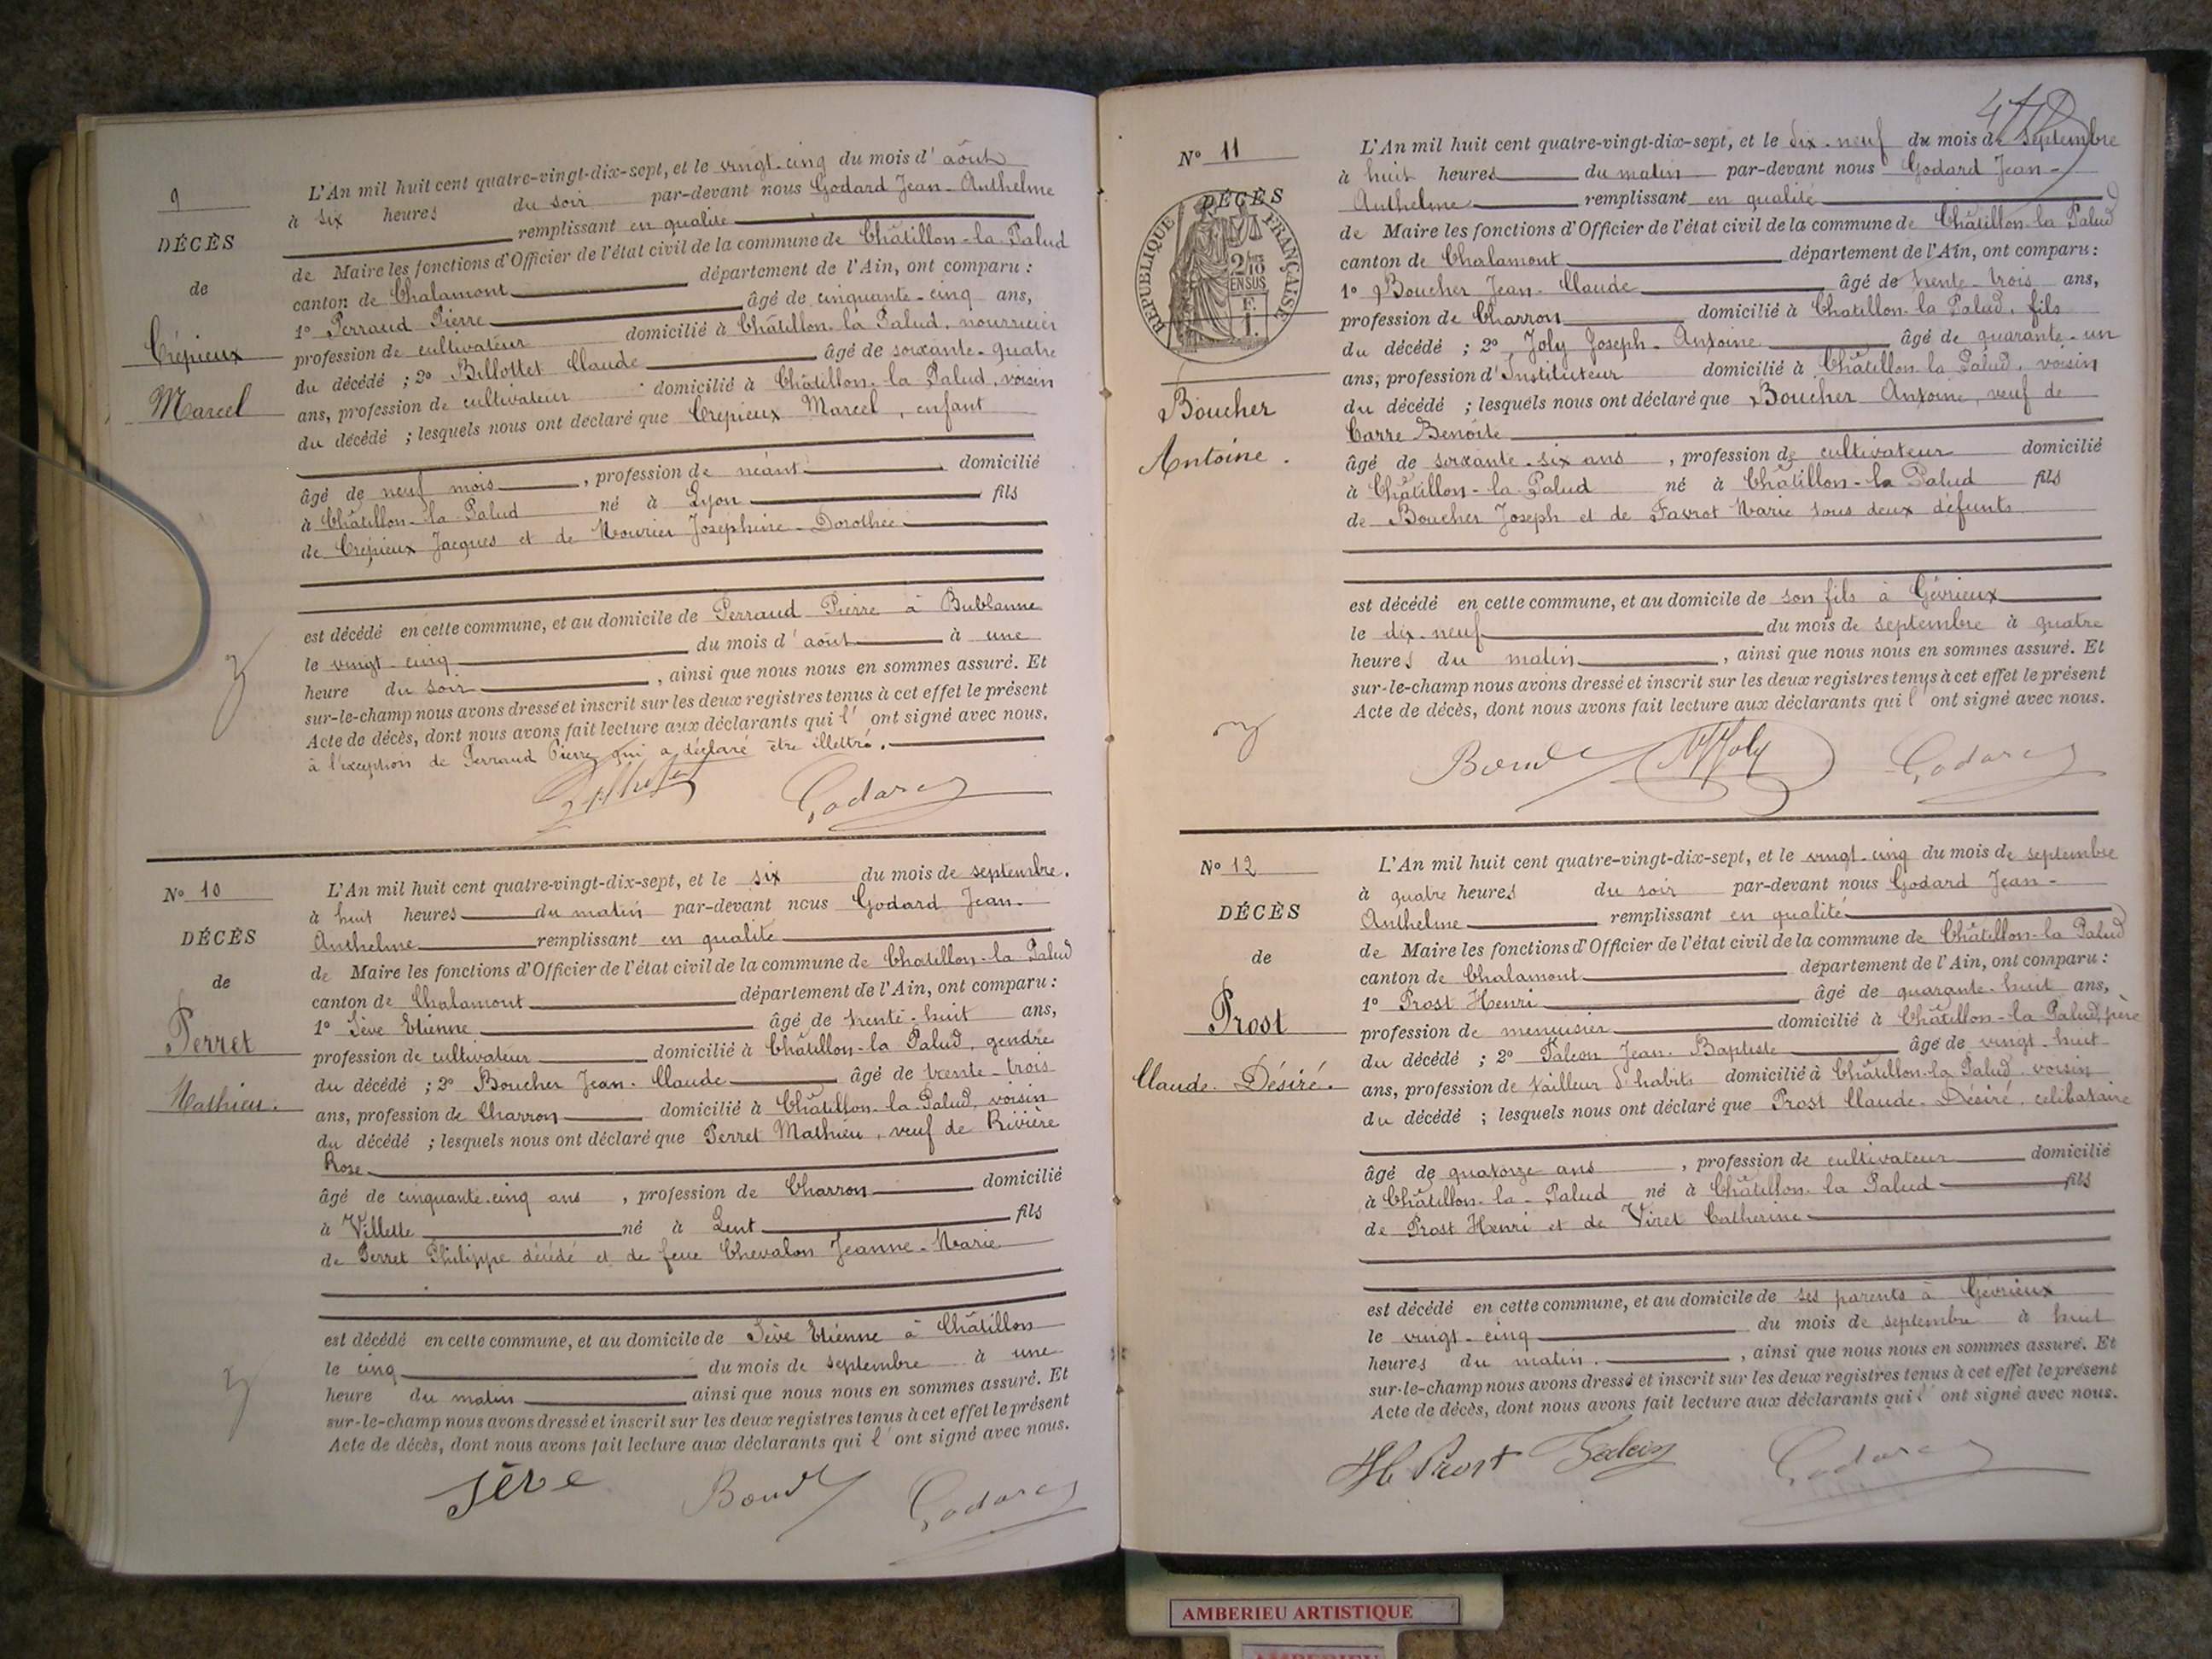 9
DÉCÈS
de
Crépieux
Marcel
L'An mil huit cent quatre-vingt-dix-sept, et le vingt-cinq du mois d'août
à six heures du soir par-devant nous Godard Jean-Anthelme
remplissant en qualité
de Maire les fonctions d'Officier de l'état civil de la commune de Châtillon-la-Palud
canton de Chalamont département de l'Ain, ont comparu :
1º Perraud Pierre âgé de cinquante-cinq ans,
profession de cultivateur domicilié à Châtillon-la-Palud, nourricier
du décédé ; 2º Billottet Claude âgé de soixante-quatre
ans, profession de cultivateur domicilié à Châtillon-la-Palud, voisin
du décédé ; lesquels nous ont déclaré que Crépieux Marcel, enfant
âgé de neuf mois, profession de néant domicilié
à Châtillon-la-Palud né à Lyon fils
de Crépieux Jacques et de Mourier Joséphine-Dorothée
est décédé en cette commune, et au domicile de Perraud Pierre à Bublanne
le vingt-cinq du mois d'août à une
heure du soir, ainsi que nous nous en sommes assuré. Et
sur-le-champ nous avons dressé et inscrit sur les deux registres tenus à cet effet le présent
Acte de décès, dont nous avons fait lecture aux déclarants qui l'ont signé avec nous.
à l'exception de Perraud Pierre qui a déclaré être illettré.
Godard
Nº 10
DÉCÈS
de
Perret
Mathieu.
L'An mil huit cent quatre-vingt-dix-sept, et le six du mois de septembre.
à huit heures du matin par-devant nous Godard Jean-
Anthelme remplissant en qualité
de Maire les fonctions d'Officier de l'état civil de la commune de Châtillon-la-Palud
canton de Chalamont département de l'Ain, ont comparu :
1º Sève Etienne âgé de trente-huit ans,
profession de cultivateur domicilié à Châtillon-la-Palud, gendre
du décédé ; 2º Boucher Jean-Claude âgé de trente-trois
ans, profession de Charron domicilié à Châtillon-la-Palud, voisin
du décédé ; lesquels nous ont déclaré que Perret Mathieu, veuf de Rivière
Rose
âgé de cinquante-cinq ans, profession de Charron domicilié
à Villette né à Lent fils
de Perret Philippe décédé et de feue Chevalon Jeanne-Marie
est décédé en cette commune, et au domicile de Sève Etienne à Châtillon
le cinq du mois de septembre à une
heure du matin ainsi que nous nous en sommes assuré. Et
sur-le-champ nous avons dressé et inscrit sur les deux registres tenus à cet effet le présent
Acte de décès, dont nous avons fait lecture aux déclarants qui l'ont signé avec nous.
Sève Godard
Nº 11
DÉCÈS
RÉPUBLIQUE FRANÇAISE
2/10
EN SUS
Boucher
Antoine.
L'An mil huit cent quatre-vingt-dix-sept, et le dix-neuf du mois de septembre
à huit heures du matin par-devant nous Godard Jean-
Anthelme remplissant en qualité
de Maire les fonctions d'Officier de l'état civil de la commune de Châtillon-la-Palud
canton de Chalamont département de l'Ain, ont comparu :
1º Boucher Jean-Claude âgé de trente-trois ans,
profession de Charron domicilié à Chatillon-la-Palud, fils
du décédé ; 2º Joly Joseph-Antoine âgé de quarante-un
ans, profession d'Instituteur domicilié à Châtillon-la-Palud, voisin
du décédé ; lesquels nous ont déclaré que Boucher Antoine, veuf de
Carre Benoîte
âgé de soixante-six ans, profession de cultivateur domicilié
à Châtillon-la-Palud né à Châtillon-la-Palud fils
de Boucher Joseph et de Favrot Marie tous deux défunts
est décédé en cette commune, et au domicile de son fils à Gévrieux
le dix-neuf du mois de septembre à quatre
heures du matin, ainsi que nous nous en sommes assuré. Et
sur-le-champ nous avons dressé et inscrit sur les deux registres tenus à cet effet le présent
Acte de décès, dont nous avons fait lecture aux déclarants qui l'ont signé avec nous.
Joly Godard
Nº 12
DÉCÈS
de
Prost
Claude-Désiré.
L'An mil huit cent quatre-vingt-dix-sept, et le vingt-cinq du mois de septembre
à quatre heures du soir par-devant nous Godard Jean-
Anthelme remplissant en qualité
de Maire les fonctions d'Officier de l'état civil de la commune de Châtillon-la-Palud
canton de Chalamont département de l'Ain, ont comparu :
1º Prost Henri âgé de quarante-huit ans,
profession de menuisier domicilié à Châtillon-la-Palud, père
du décédé ; 2º Jean-Baptiste âgé de vingt-huit
ans, profession de tailleur d'habits domicilié à Châtillon-la-Palud, voisin
du décédé ; lesquels nous ont déclaré que Prost Claude-Désiré, célibataire
âgé de quatorze ans, profession de cultivateur domicilié
à Châtillon-la-Palud né à Châtillon-la-Palud fils
de Prost Henri et de Viret Catherine
est décédé en cette commune, et au domicile de ses parents à Gévrieux
le vingt-cinq du mois de septembre à huit
heures du matin., ainsi que nous nous en sommes assuré. Et
sur-le-champ nous avons dressé et inscrit sur les deux registres tenus à cet effet le présent
Acte de décès, dont nous avons fait lecture aux déclarants qui l'ont signé avec nous.
H Prost Godard
AMBERIEU ARTISTIQUE
AMBERIEU